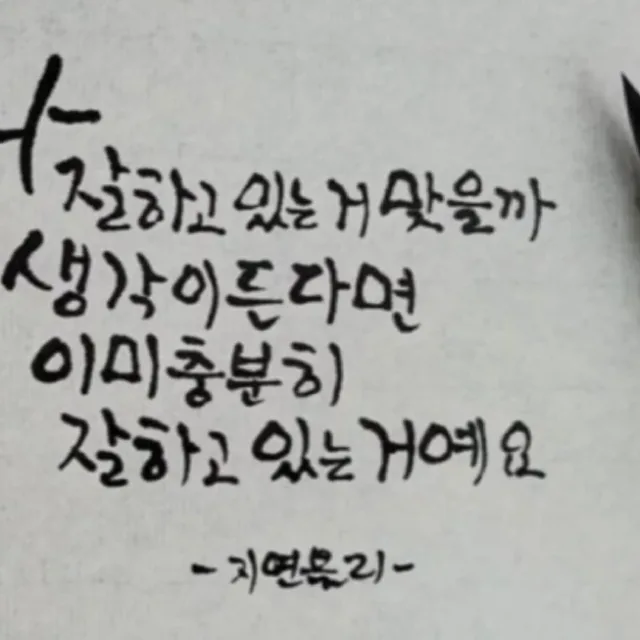 나
잘하고 있는 거 맞을까
생각이 든다면
이미 충분히
잘하고 있는 거예요